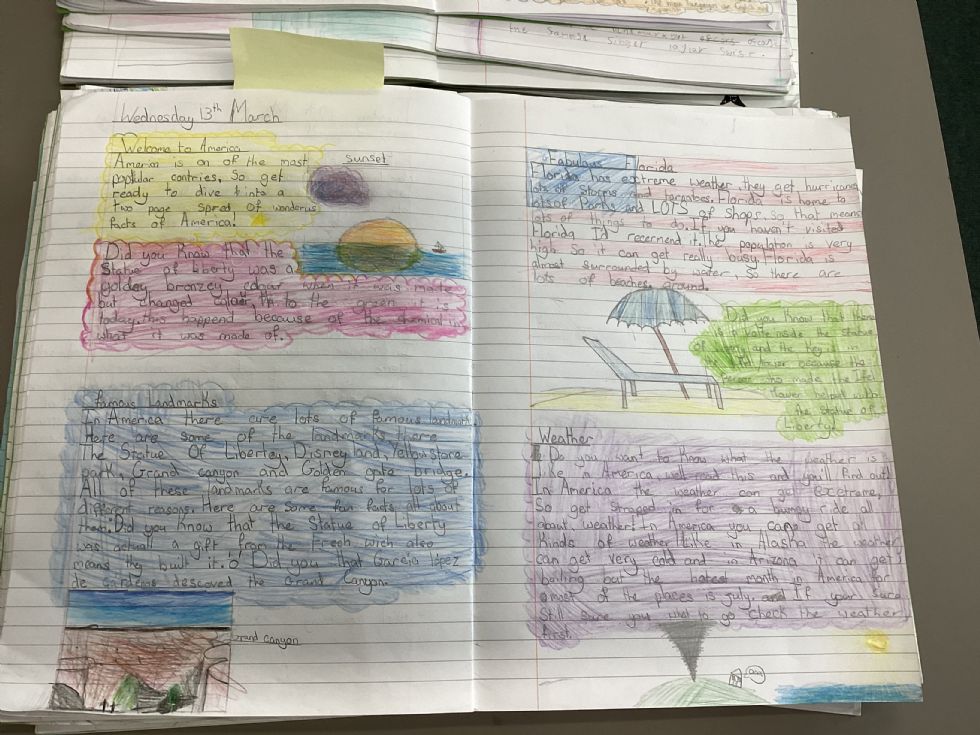 the Sarnos singer
Wednesday 13th March
Welcome to America
America is on of the most
popular contries, So get
ready to dive into a
two page spred of wonderus
facts of America!
sunset
Did you know that the
Statue of Liberty was a
goldey bronzey colour when it was made
but changed colour, to the green it is
today. this happend because of the chemical in
what it was made of.
Famous Landmarks
In America there are lots of famous landmark
Here are some of the landmarks there
The Statue Of Libertey, Disney land, Yellow stone
park, Grand canyon and Golden gate bridge.
All of these landmarks are famous for lots of
different reasons. Here are some fun facts all about
them. Did you know that the Statue of Liberty
was actuall a gift from the Freach wich also
means they built it. Did you that Garcia lópez
de Cardenas descoved the Grand Canyon.
Grand canyon
Fabulous Florida
Florida has extreme weather, they get hurricane
lots of Storms and tornatoes. Florida is home to
lots of Parks and LOTS of shops. So that means
lots of things to do. If you haven't visited
Florida I'd recernend it. The population is very
high. So it can get really busy. Florida is
almost surrounded by water, So there are
lots of beaches around.
Did you know that there
is a inside the Statue
of and the key is in
tower because the
who made the Ifel
tower helped
the statue of
Liberty.
Weather
Do you want to know what the weather is
like in America, well read this and you'll find out!
In America the weather can get Extreme,
So get straped in for a bumpy ride all
about weather! In America you can get all
kinds of weather! Like in Alaska the weather
can get very cold and in Arizona it can get
boiling but the hotest month in America for
most of the places is july. and If your sure
still sure you want to go check the weather
first.